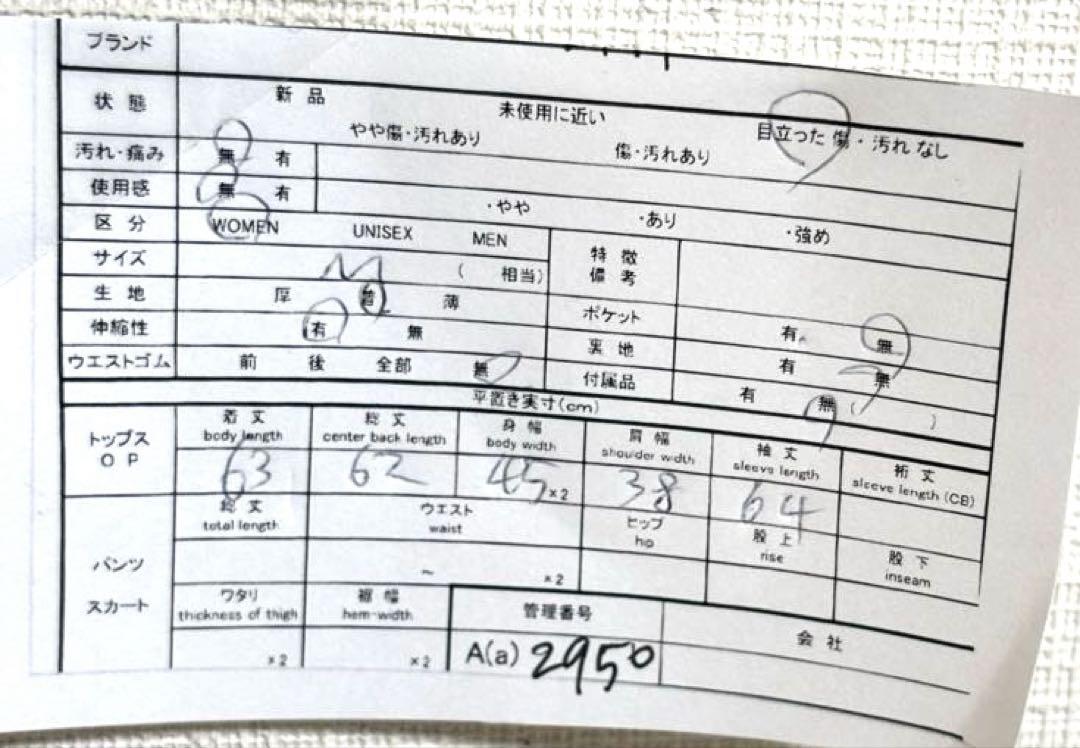 ブランド
状態 新品 未使用に近い 目立った傷・汚れなし
やや傷・汚れあり 傷・汚れあり
汚れ・痛み 無 有
使用感 無 有 ・やや ・あり ・強め
区分 WOMEN UNISEX MEN 特徴
備考
サイズ M ( 相当)
生地 厚 普 薄 ポケット 有 無
伸縮性 有 無 裏地 有 無
ウエストゴム 前 後 全部 無 付属品 有 無 ( )
平置き実寸(cm)
トップス
OP
着丈 総丈 身幅 肩幅 袖丈 裄丈
body length center back length body width shoulder width sleeve length sleeve length (CB)
63 62 45 ×2 38 64
パンツ
スカート
総丈 ウエスト ヒップ 股上 股下
total length waist hip rise inseam
~ ×2
ワタリ 裾幅 管理番号 会社
thickness of thigh hem-width
×2 ×2 A(a) 2950